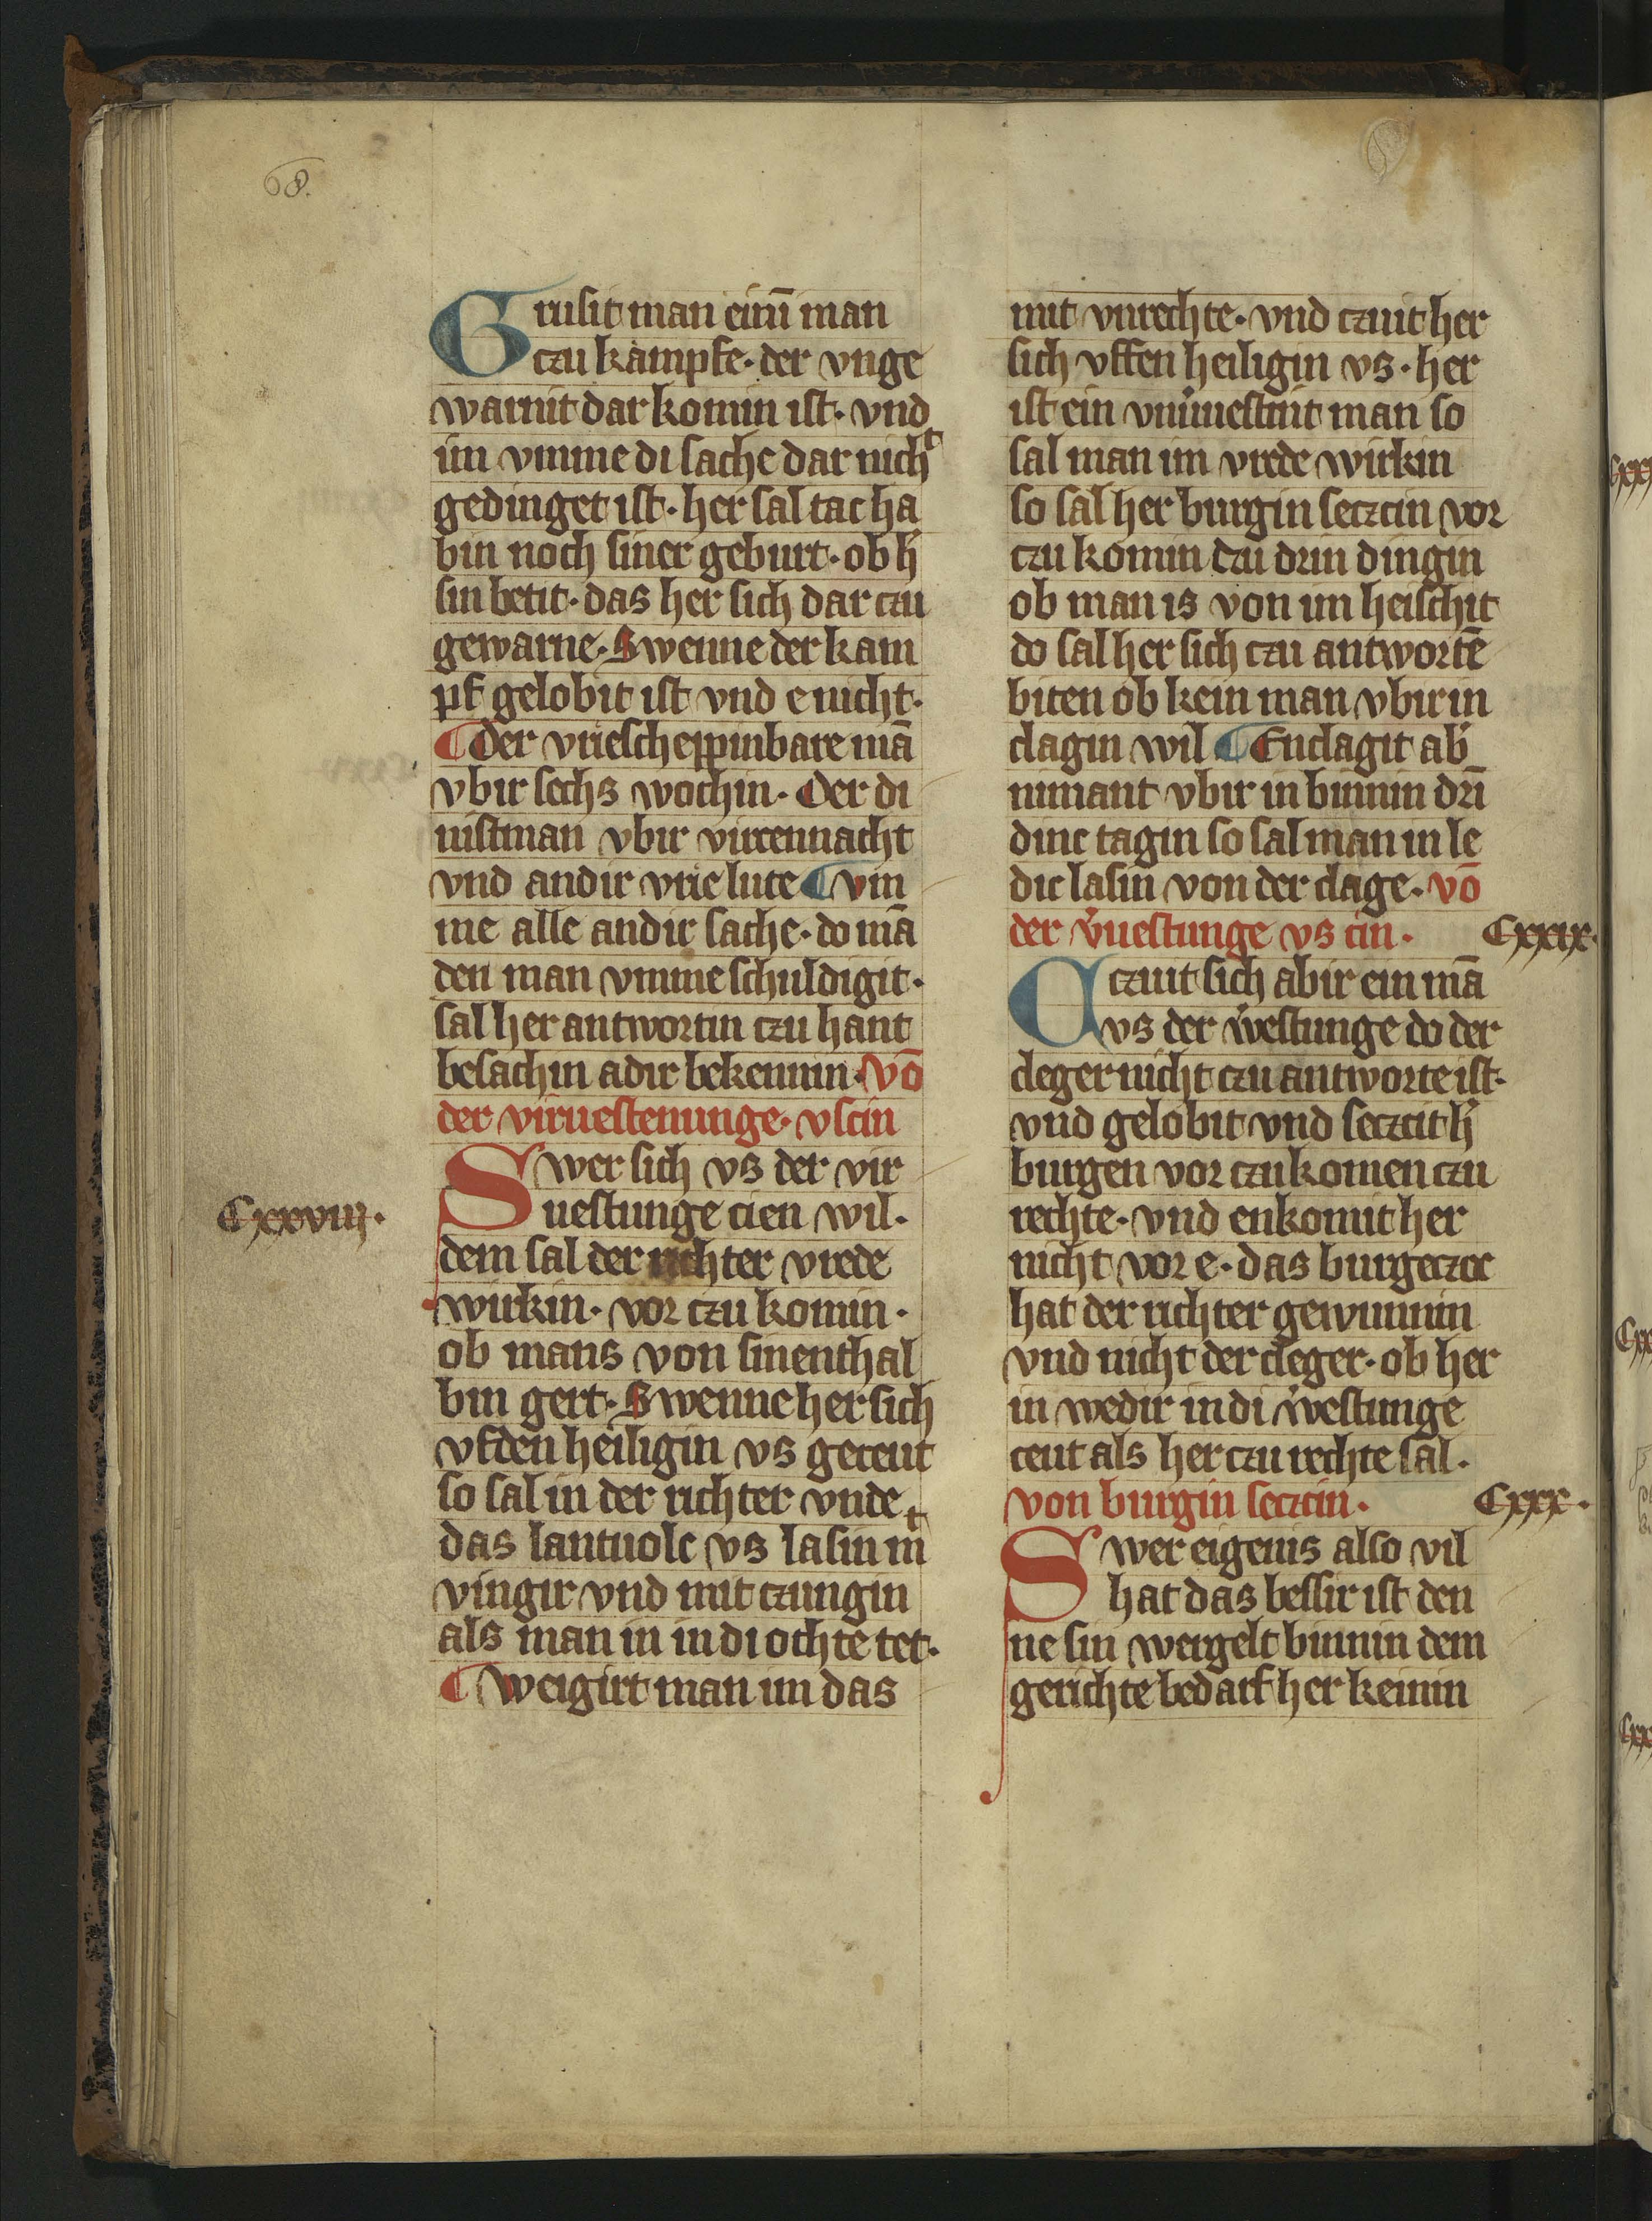 68.
Grusit man einē man
czu kampfe · der vnge
warnit dar komin ist · vnd
im vmme di sache dar nicht
gedinget ist · her sal tac ha
bin noch siner geburt · ob h̓
sin betit · das her sich dar czu
gewarne · Swenne der kam
pf gelobit ist vnd e nicht ·
¶ Der vriescheppinbare mā
vbir sechs wochin · Der di
nistman vbir virzennacht
vnd andir vrie lute ¶ vm
me alle andir sache · do mā
den man vmme schuldigit ·
sal her antwortin czu hant
besachin adir bekennin · vō
der viruestenunge · vscin
Cxxviij ·
Swer sich vs der vir
uestunge cien wil ·
dem sal der richter vrede
wirkin · vor czu komin ·
ob mans von sinenthal
bin gert · Swenne her sich
vf den heiligin vs geceut
so sal in der richter vnde
das lantuolc vs lasin mit
vingir vnd mit czungin
als man in in di ochte tet ·
¶ Weigirt man im das
mit vnrechte · vnd czuit her
sich vffen heiligin vs · her
ist ein vnv̓uestint man so
sal man im vrede wirkin
so sal her burgin seczcin vor
czu komin czu drin dingin
ob man is von im heischit
do sal her sich czu antwortē
biten ob kein man vbir in
clagin wil ¶ Enclagit ab̓
nimant vbir in binnin dri
dinc tagin so sal man in le
dic lasin von der clage · vō
der v̓uestunge vs cin · Cxxix ·
Czuit sich abir ein mā
vs der v̓westunge do der
cleger nicht czu antworte ist ·
vnd gelobit vnd seczcit h̓
burgen vor czu komen czu
rechte · vnd enkomit her
nicht vor e · das burgeczoc
hat der richter gewunnin
vnd nicht der cleger · ob her
in wedir in di v̓westunge
ceut als her czu rechte sal ·
von burgin seczcin · Cxxx ·
Swer eigenis also vil
hat das bessir ist den
ne sin wergelt binnin dem
gerichte bedarf her keinin